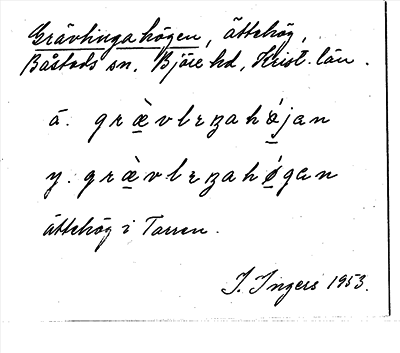 Grävlingahögen, ättehög,
Båstads sn, Bjäre hd, Krist. län.
ä. græ̀vlɪŋahǿjan
y. græ̀vlɪŋahǿgan
ättehög i Tarren.
I. Ingers 1953.